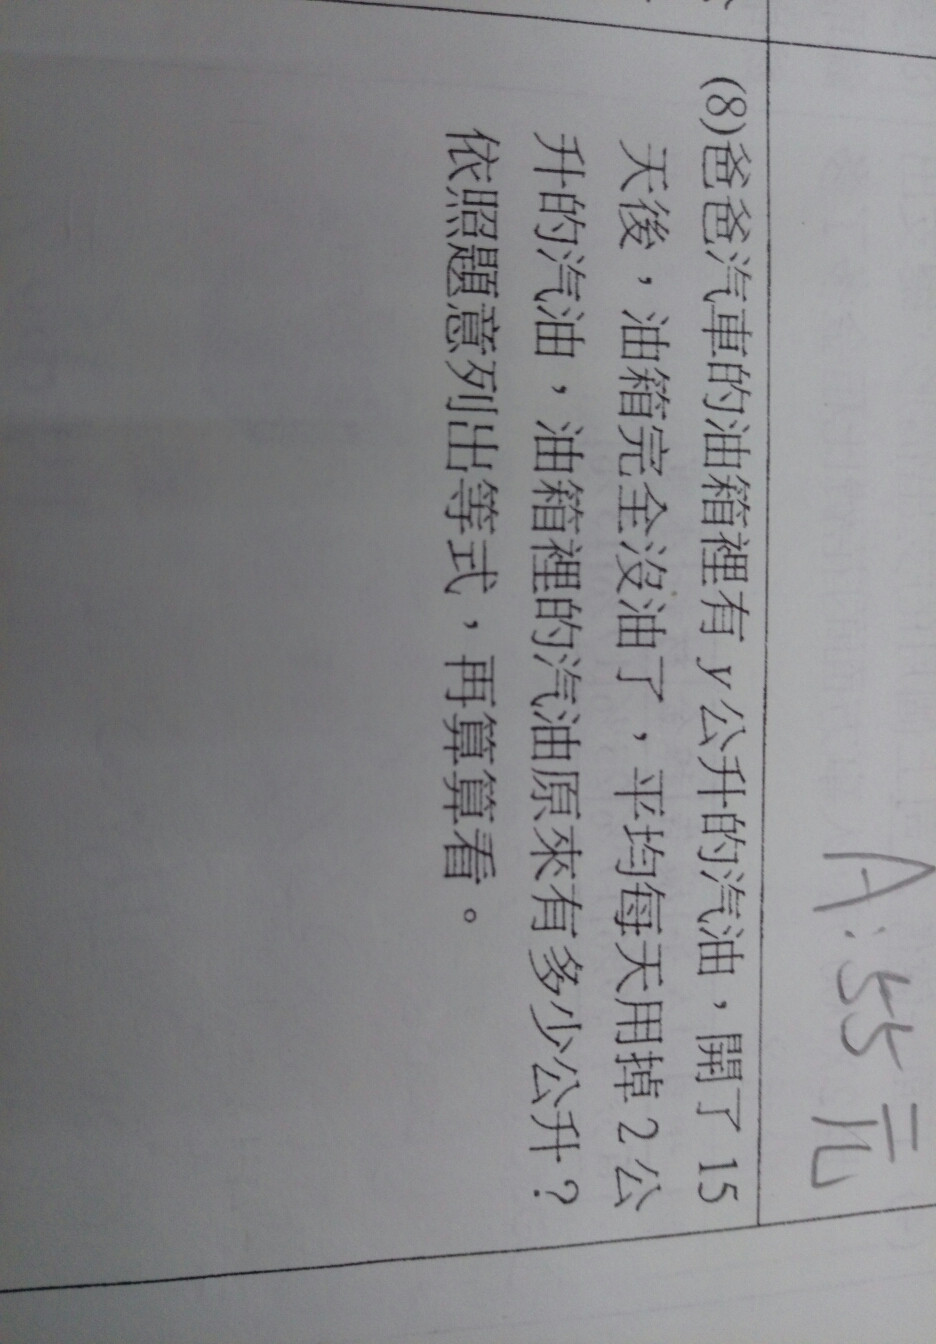 A:55元
(8)爸爸汽車的油箱裡有 y 公升的汽油，開了 15
天後，油箱完全沒油了，平均每天用掉 2 公
升的汽油，油箱裡的汽油原來有多少公升？
依照題意列出等式，再算算看。